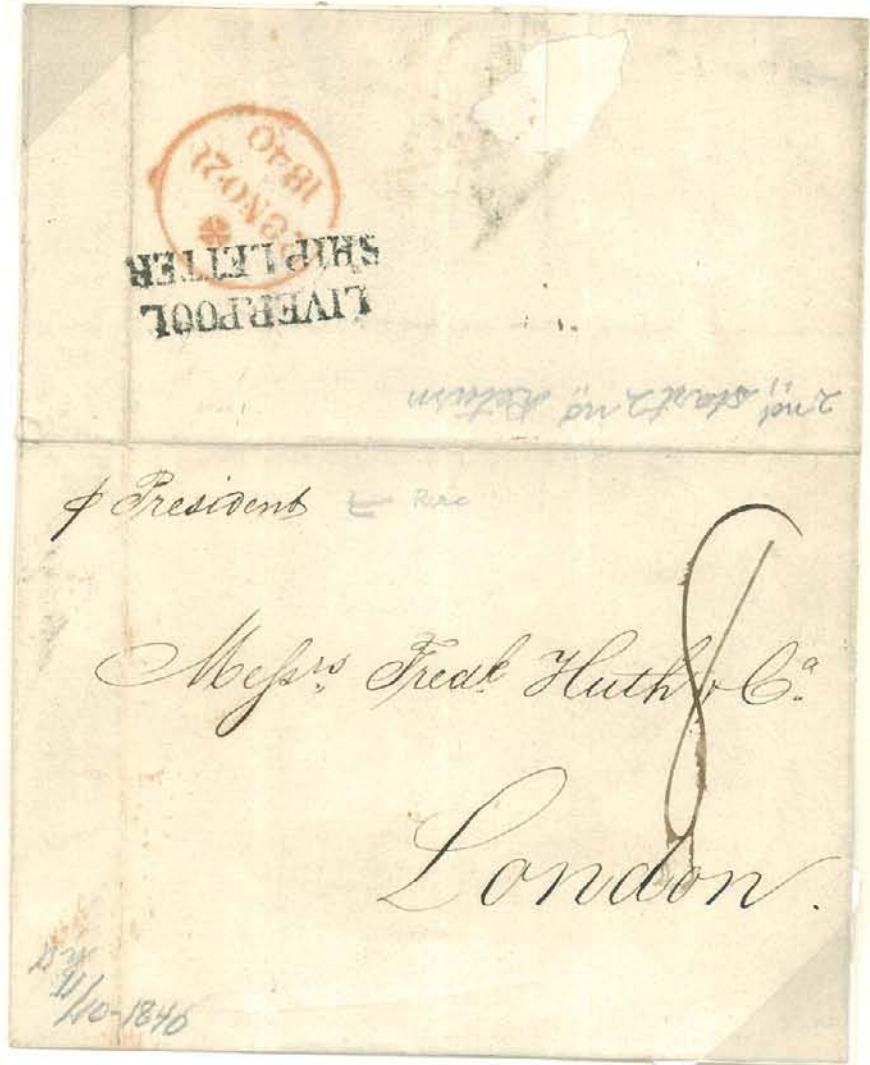 1840
NO·21
LIVERPOOL
SHIP LETTER
2nd, start 2 nd Return
p President
Rare
Messrs. Fredk. Huth & Co.
8
London.
11/10-1840